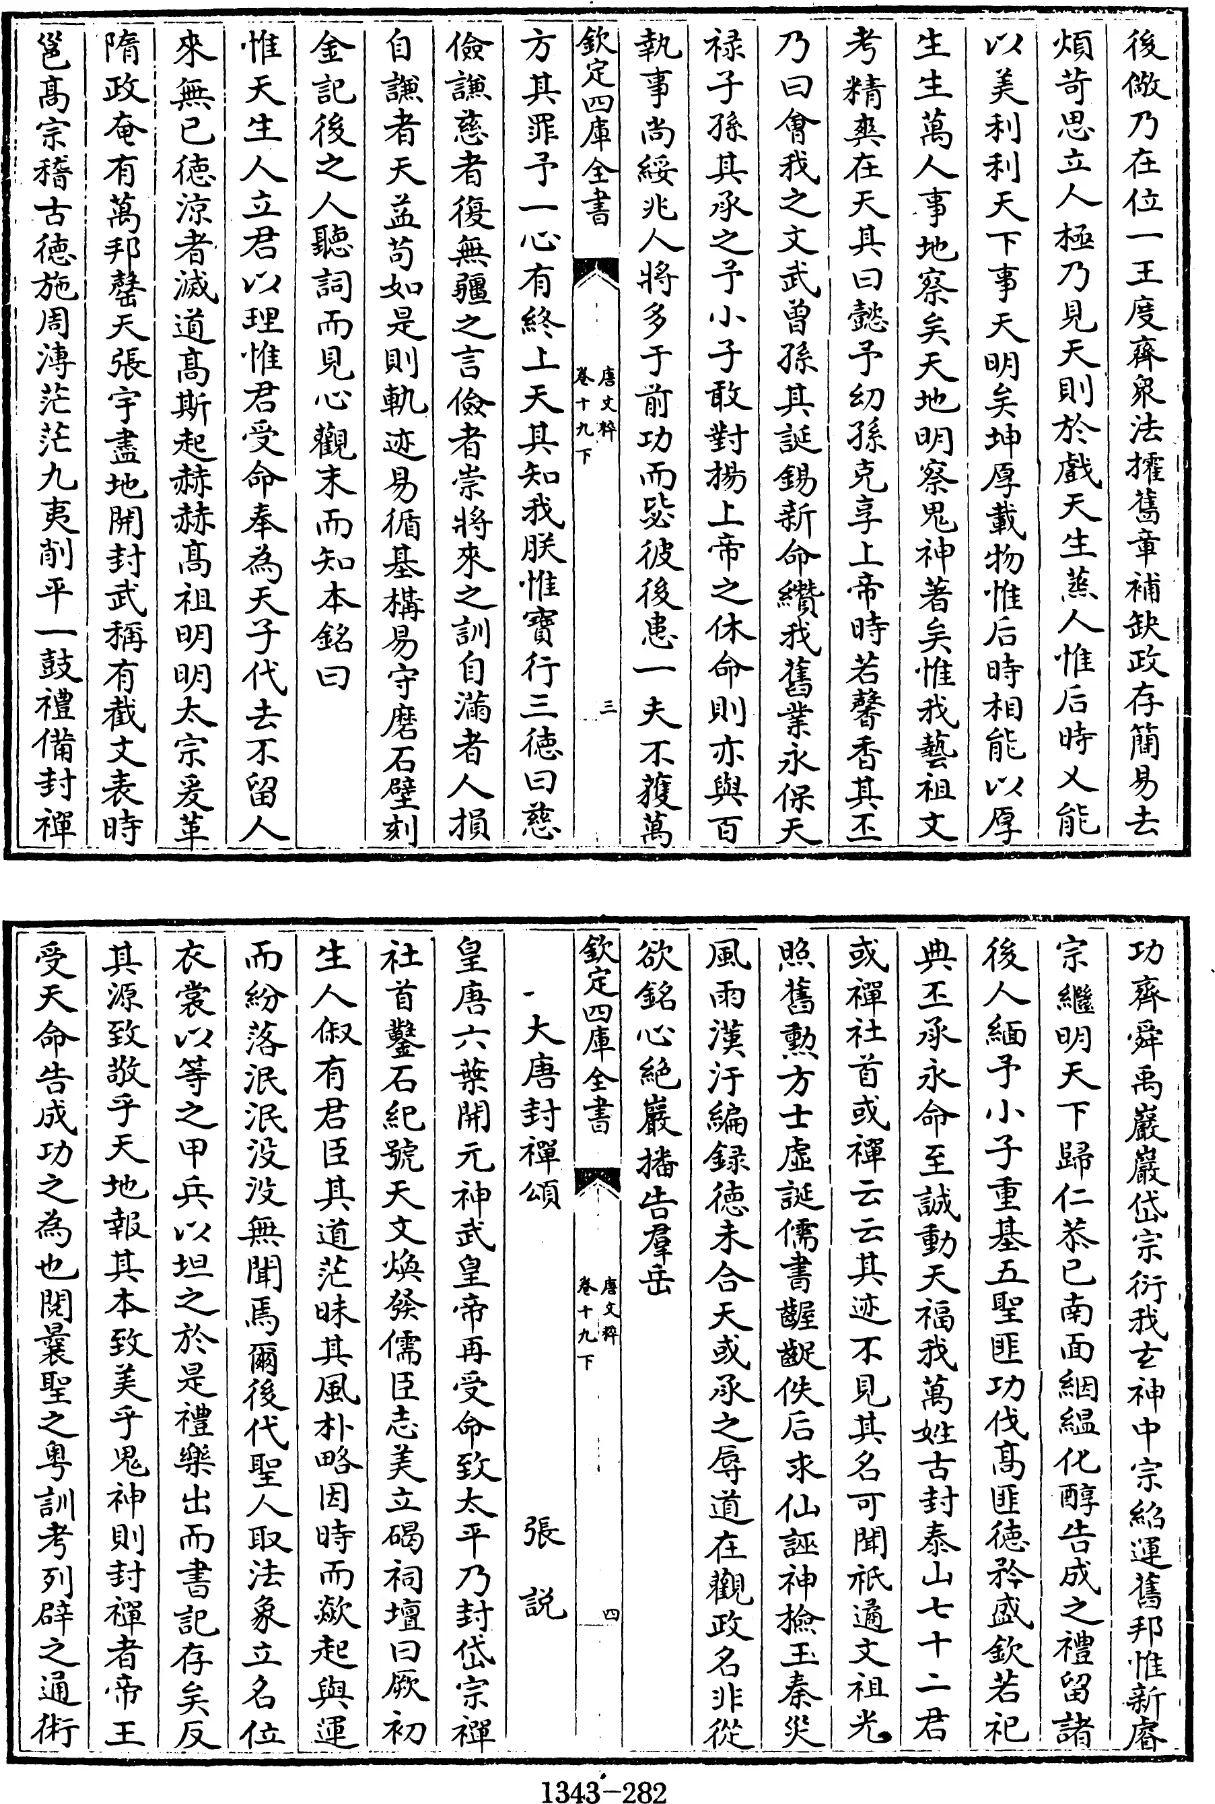 後儆乃在位一王度齊衆法摧舊章補缺政存簡易去
煩苛思立人極乃見天則於戲天生蒸人惟后時乂能
以美利利天下事天明矣坤厚載物惟后時相能以厚
生生萬人事地察矣天地明察鬼神著矣惟我藝祖文
考精爽在天其曰懿予幼孫克享上帝時若馨香其丕
乃曰㑹我之文武曾孫其誕錫新命纘我舊業永保天
禄子孫其承之予小子敢對揚上帝之休命則亦與百
執事尚綏兆人將多于前功而毖彼後患一夫不獲萬
欽定四庫全書
唐文粹
卷十九下
三
方其罪予一心有終上天其知我朕惟寶行三徳曰慈
儉謙慈者復無疆之言儉者崇將來之訓自滿者人損
自謙者天益苟如是則軌迹易循基構易守磨石壁刻
金記後之人聽詞而見心觀末而知本銘曰
惟天生人立君以理惟君受命奉為天子代去不留人
來無已徳涼者滅道髙斯起赫赫髙祖明明太宗爰革
隋政奄有萬邦罄天張宇盡地開封武稱有截文表時
邕髙宗稽古徳施周溥茫茫九夷削平一鼓禮備封禪
功齊舜禹巖巖岱宗衍我𤣥神中宗紹運舊邦惟新睿
宗繼明天下歸仁恭已南面絪緼化醇告成之禮留諸
後人緬予小子重基五聖匪功伐髙匪徳矜盛欽若祀
典丕承永命至誠動天福我萬姓古封泰山七十二君
或禪社首或禪云云其迹不見其名可聞祇遹文祖光
照舊勲方士虛誕儒書齷齪佚后求仙誣神檢玉秦災
風雨漢汙編録徳未合天或承之辱道在觀政名非從
欲銘心絶巖播告羣岳
欽定四庫全書
唐文粹
卷十九下
四
大唐封禪頌　　　　張説
皇唐六葉開元神武皇帝再受命致太平乃封岱宗禪
社首鑿石紀號天文煥發儒臣志美立碣祠壇曰厥初
生人俶有君臣其道茫昧其風朴略因時而歘起與運
而紛落泯泯没没無聞焉爾後代聖人取法象立名位
衣裳以等之甲兵以坦之於是禮樂出而書記存矣反
其源致敬乎天地報其本致美乎鬼神則封禪者帝王
受天命告成功之為也閱曩聖之粤訓考列辟之通術
1343-282